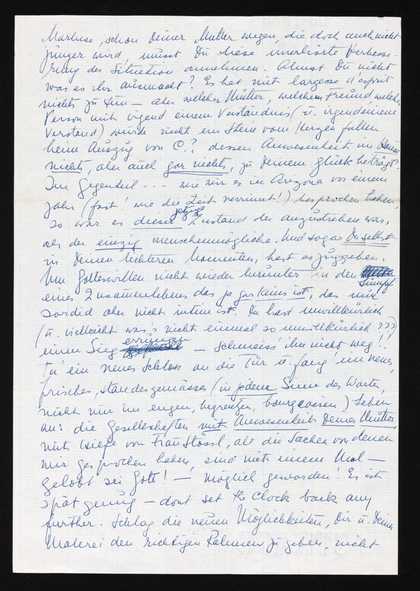 Marlise, schon Deiner Mutter wegen, die doch auch nicht
jünger wird, müsst Du diese unerhörte Verbesse
rung der Situation annehmen. Ahnst Du nicht
was es ihr ausmacht? Es hat mit largesse d'esprit
nichts zu tun – aber welcher Mutter, welchem Freund welcher
Person mit irgend einem Verständnis (u. irgendeinem
Verstand) würde nicht ein Stein vom Herzen fallen
beim Auszug von C?, dessen Anwesenheit im
nichts, aber auch gar nichts, zu Deinem Glück beiträgt.
Im Gegenteil - - - wie wir es in Arizona vor einem
Jahr (fast! wie die Zeit verrinnt!) besprochen haben,
so war es dieser jetzige Zustand der anzustreben war,
als der einzig menschenmögliche. Und sogar Du selbst
in Deinen lichteren Momenten, hast es zugegeben.
Um Gotteswillen nicht wieder herunter in den Sumpf
eines Zusammenlebens das ja gar keins ist, das nur
sordid aber nicht intim ist. Du hast unwillkürlich
(u. vielleicht war's nicht einmal so unwillkürlich???)
einen Sieg errungen – schmeiss' ihn nicht weg!!
Tu ein neues Schloss an die Tür u. fang ein neues,
frisches, standesgemässes (in jedem Sinne des Wortes,
nicht nur im engen, begrenzten, bourgeoisen) Leben
an: die Gesellschaften mit Anwesenheit Deiner Mutter
mit von Frau Stössl, all die Sachen von denen
wir gesprochen haben, sind mit einem Mal –
gelobt sei Gott! – möglich geworden! Es ist
spät genug – dont set the clock back any
further. Schlag die neuen Möglichkeiten, Dir u. Deiner
Malerei den richtigen Rahmen zu geben, nicht